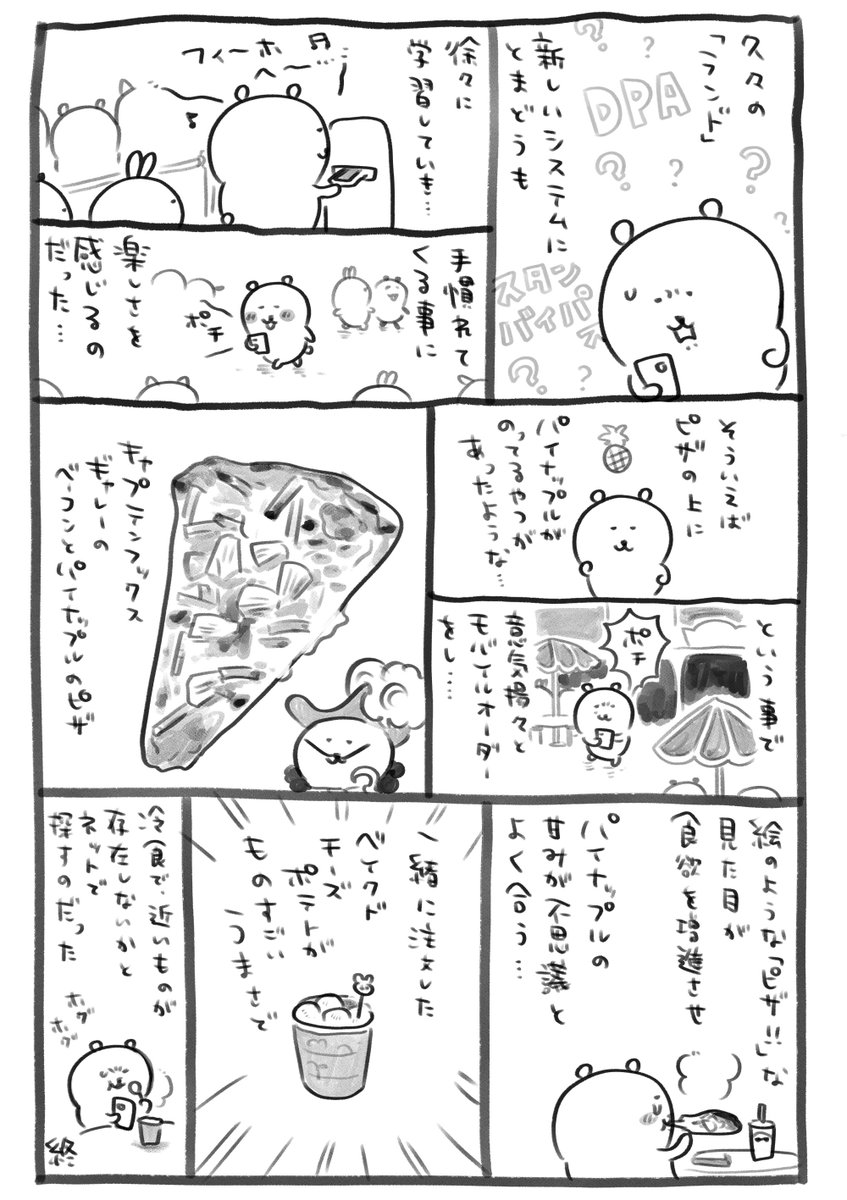 久々の
「ランド」
新しいシステムに
とまどうも
DPA
スタン
バイパス
徐々に
学習していき…
フィーホー
へ〜…
手慣れて
くる事に
楽しさを
感じるの
だった…
ポチ
そういえば
ピザの上に
パイナップルが
のってるやつが
あったような…
という事で
意気揚々と
モバイルオーダー
をし……
ポチ
キャプテンフックス
ギャレーの
ベーコンとパイナップルのピザ
絵のような「ピザ!!」な
見た目が
食欲を増進させ
パイナップルの
甘みが不思議と
よく合う…
一緒に注文した
ベイクド
チーズ
ポテトが
ものすごい
うまさで
冷食で近いものが
存在しないかと
ネットで
探すのだった
ホグ
ホグ
終